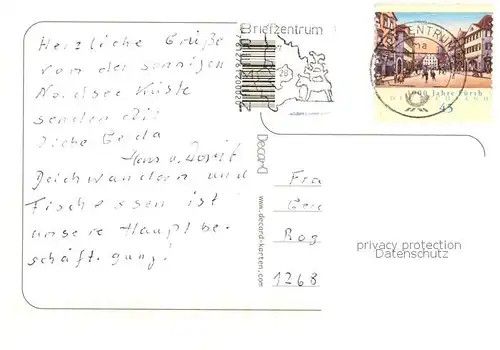 Herzliche Grüße
von der sonnigen
Nordsee Küste
senden Dir
liche Gerda
Hans u. Dorit
Deichwandern und
Fischessen ist
unsere Hauptbe-
schäftigung!
Briefzentrum
BRIEFZENTRUM
1000 Jahre Fürth
DEUTSCHLAND
45
Decard
www.decard-karten.com
Fra
Ger
Rog
1268
privacy protection
Datenschutz